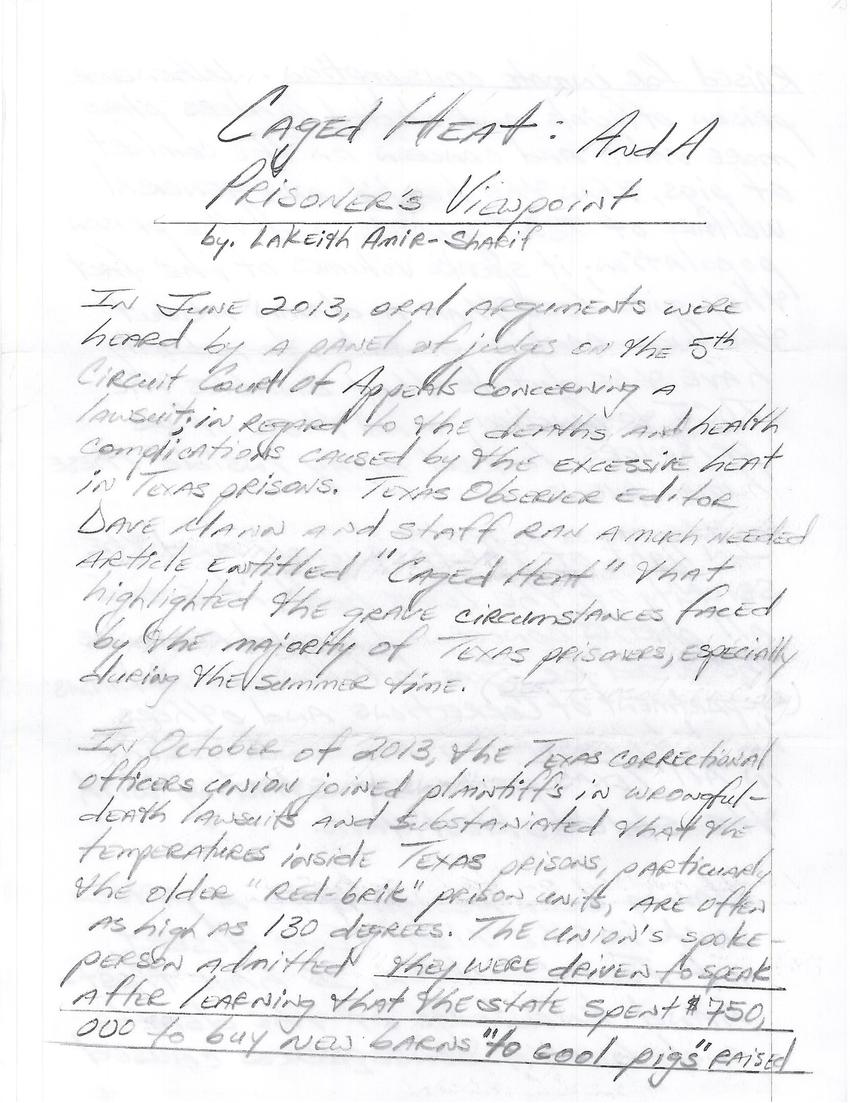 Caged Heat: And A
Prisoner's Viewpoint
by. Lakeith Amir-Sharif
In June 2013, oral arguments were
heard by a panel of judges on the 5th
Circuit Court of Appeals concerning a
lawsuit; in regard to the deaths and health
complications caused by the excessive heat
in Texas prisons. Texas Observer Editor
Dave Mann and staff ran a much needed
article entitled "Caged Heat" that
highlighted the grave circumstances faced
by the majority of Texas prisoners, especially
during the summer time.
In October of 2013, the Texas correctional
officers union joined plaintiffs in wrongful-
death lawsuits and substaniated that the
temperatures inside Texas prisons, particularly
the older "Red-brik" prison units, are often
as high as 130 degrees. The union's spoke-
person admitted they were driven to speak
after learning that the state spent $750,
000 to buy new barns "to cool pigs" raised